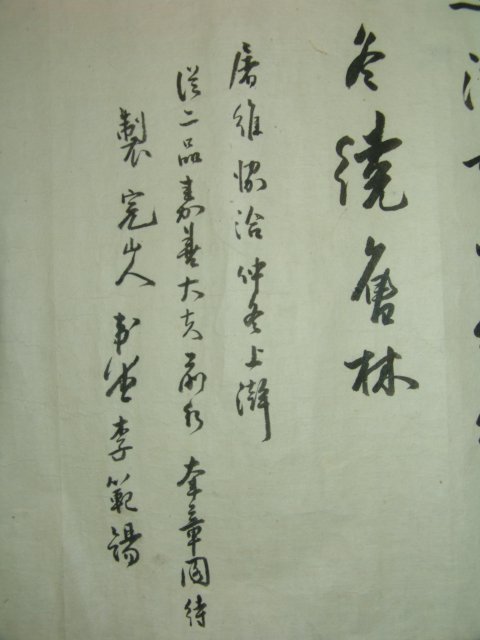 各繞舊林
屠維協洽仲冬上澣
從二品嘉善大夫前行 奎章閣待
製 完山人 韋堂 李範錫